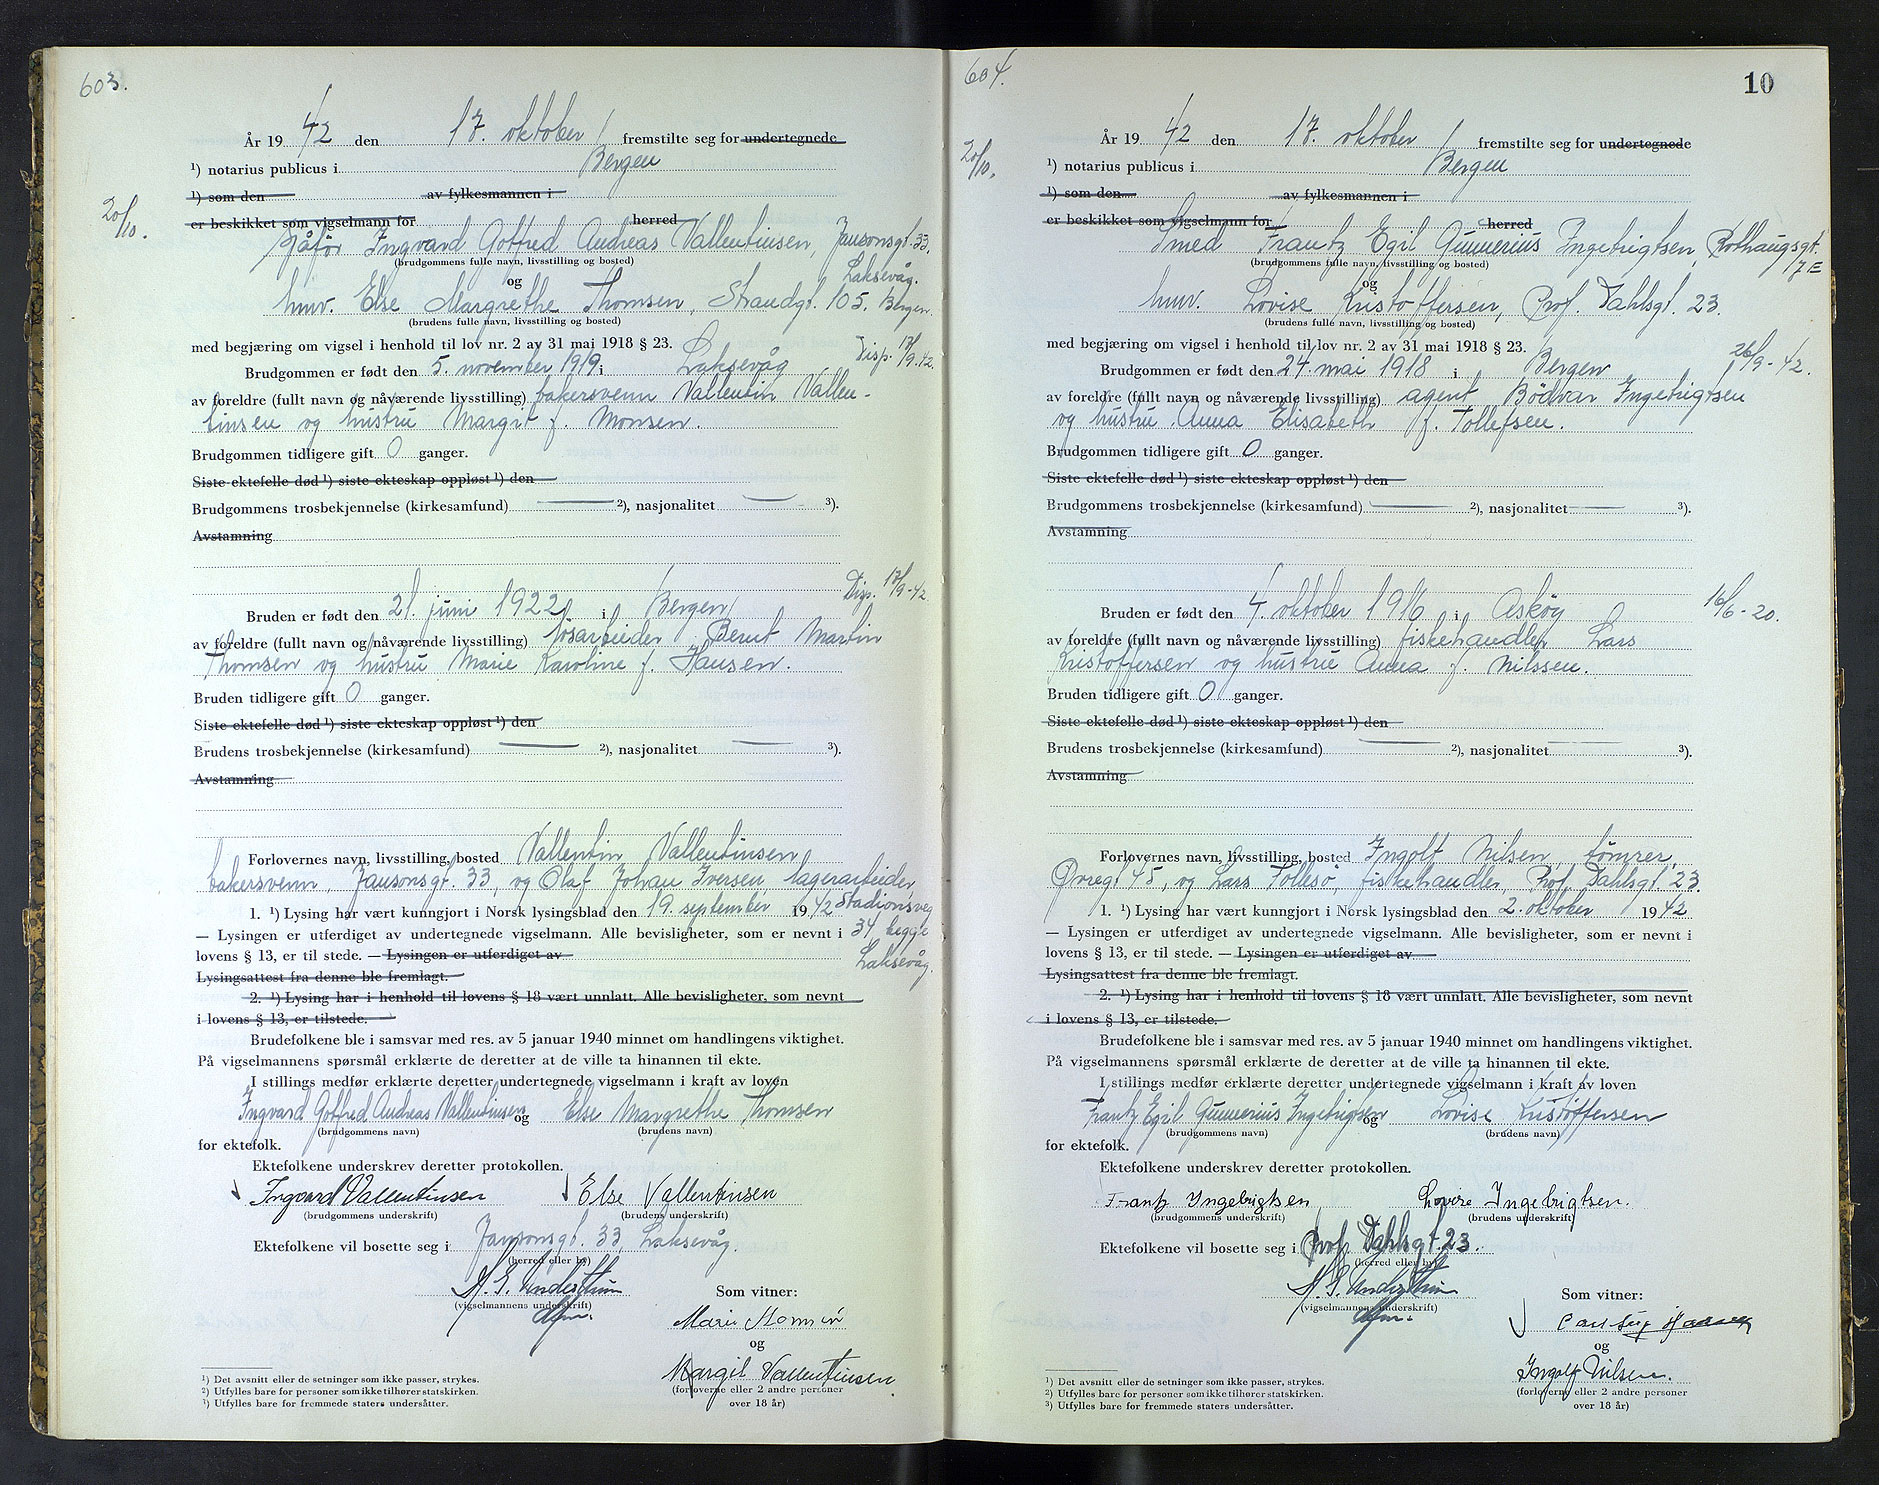 603.
År 19 42 den 17. oktober fremstilte seg for undertegnede
¹) notarius publicus i Bergen
¹) som den av fylkesmannen i
20/10.
er beskikket som vigselmann for herred
Sjåfør Ingvard Gotfred Andreas Vallentinsen, Jansonsgt. 33,
(brudgommens fulle navn, livsstilling og bosted) Laksevåg.
og
hmv. Else Margrethe Thomsen, Strandgt. 105, Bergen.
(brudens fulle navn, livsstilling og bosted)
med begjæring om vigsel i henhold til lov nr. 2 av 31 mai 1918 § 23.
Disp. 17/9.42.
Brudgommen er født den 5. november 1919 i Laksevåg
av foreldre (fullt navn og nåværende livsstilling) bakersvenn Vallentin Vallen-
tinsen og hustru Margit f. Monsen.
Brudgommen tidligere gift 0 ganger.
Siste ektefelle død ¹) siste ekteskap oppløst ¹) den
Brudgommens trosbekjennelse (kirkesamfund) ²), nasjonalitet ³).
Avstamning
Disp. 17/9-42.
Bruden er født den 21. juni 1922 i Bergen
av foreldre (fullt navn og nåværende livsstilling) løsarbeider Bernt Martin
Thomsen og hustru Marie Karoline f. Hansen.
Bruden tidligere gift 0 ganger.
Siste ektefelle død ¹) siste ekteskap oppløst ¹) den
Brudens trosbekjennelse (kirkesamfund) ²), nasjonalitet ³).
Avstamning
Forlovernes navn, livsstilling, bosted Vallentin Vallentinsen,
bakersvenn, Jansonsgt. 33, og Olaf Johan Iversen, lagerarbeider,
1. ¹) Lysing har vært kunngjort i Norsk lysingsblad den 19. september 1942 Stadionsveg
— Lysingen er utferdiget av undertegnede vigselmann. Alle bevisligheter, som er nevnt i 34, begge
lovens § 13, er til stede. — Lysingen er utferdiget av Laksevåg.
Lysingsattest fra denne ble fremlagt.
2. ¹) Lysing har i henhold til lovens § 18 vært unnlatt. Alle bevisligheter, som nevnt
i lovens § 13, er tilstede.
Brudefolkene ble i samsvar med res. av 5 januar 1940 minnet om handlingens viktighet.
På vigselmannens spørsmål erklærte de deretter at de ville ta hinannen til ekte.
I stillings medfør erklærte deretter undertegnede vigselmann i kraft av loven
Ingvard Gotfred Andreas Vallentinsen og Else Margrethe Thomsen
(brudgommens navn) (brudens navn)
for ektefolk.
Ektefolkene underskrev deretter protokollen.
Ingvard Vallentinsen Else Vallentinsen
(brudgommens underskrift) (brudens underskrift)
Ektefolkene vil bosette seg i Jansonsgt. 33, Laksevåg.
(herred eller by)
(vigselmannens underskrift) Som vitner:
Marie
og
Margit Vallentinsen
(forloverne eller 2 andre personer
over 18 år)
¹) Det avsnitt eller de setninger som ikke passer, strykes.
²) Utfylles bare for personer som ikke tilhører statskirken.
³) Utfylles bare for fremmede staters undersåtter.
604.
10
År 19 42 den 17. oktober fremstilte seg for undertegnede
¹) notarius publicus i Bergen
20/10.
¹) som den av fylkesmannen i
er beskikket som vigselmann for herred
Smed Frantz Egil Gunnerius Ingebrigtsen, Rothaugsgt.
(brudgommens fulle navn, livsstilling og bosted) 7E
og
hmv. Lovise Kristoffersen, Prof. Dahlsgt. 23.
(brudens fulle navn, livsstilling og bosted)
med begjæring om vigsel i henhold til lov nr. 2 av 31 mai 1918 § 23.
Brudgommen er født den 24. mai 1918 i Bergen 26/9-42.
av foreldre (fullt navn og nåværende livsstilling) agent Bødvar Ingebrigtsen
og hustru Anna Elisabeth f. Tollefsen.
Brudgommen tidligere gift 0 ganger.
Siste ektefelle død ¹) siste ekteskap oppløst ¹) den
Brudgommens trosbekjennelse (kirkesamfund) ²), nasjonalitet ³).
Avstamning
Bruden er født den 4. oktober 1916 i Askøy 16/6-20.
av foreldre (fullt navn og nåværende livsstilling) fiskehandler Lars
Kristoffersen og hustru Anna f. Nilssen.
Bruden tidligere gift 0 ganger.
Siste ektefelle død ¹) siste ekteskap oppløst ¹) den
Brudens trosbekjennelse (kirkesamfund) ²), nasjonalitet ³).
Avstamning
Forlovernes navn, livsstilling, bosted Ingolf Nilsen, tømrer,
Øvregt 45, og Lars Follesø, fiskehandler, Prof. Dahlsgt 23.
1. ¹) Lysing har vært kunngjort i Norsk lysingsblad den 2. oktober 1942
— Lysingen er utferdiget av undertegnede vigselmann. Alle bevisligheter, som er nevnt i
lovens § 13, er til stede. — Lysingen er utferdiget av
Lysingsattest fra denne ble fremlagt.
2. ¹) Lysing har i henhold til lovens § 18 vært unnlatt. Alle bevisligheter, som nevnt
i lovens § 13, er tilstede.
Brudefolkene ble i samsvar med res. av 5 januar 1940 minnet om handlingens viktighet.
På vigselmannens spørsmål erklærte de deretter at de ville ta hinannen til ekte.
I stillings medfør erklærte deretter undertegnede vigselmann i kraft av loven
Frantz Egil Gunnerius Ingebrigtsen og Lovise Kristoffersen
(brudgommens navn) (brudens navn)
for ektefolk.
Ektefolkene underskrev deretter protokollen.
Frantz Ingebrigtsen Lovise Ingebrigtsen.
(brudgommens underskrift) (brudens underskrift)
Ektefolkene vil bosette seg i Prof. Dahlsgt. 23.
(herred eller by)
(vigselmannens underskrift) Som vitner:
og
Ingolf Nilsen.
(forloverne eller 2 andre personer
over 18 år)
¹) Det avsnitt eller de setninger som ikke passer, strykes.
²) Utfylles bare for personer som ikke tilhører statskirken.
³) Utfylles bare for fremmede staters undersåtter.